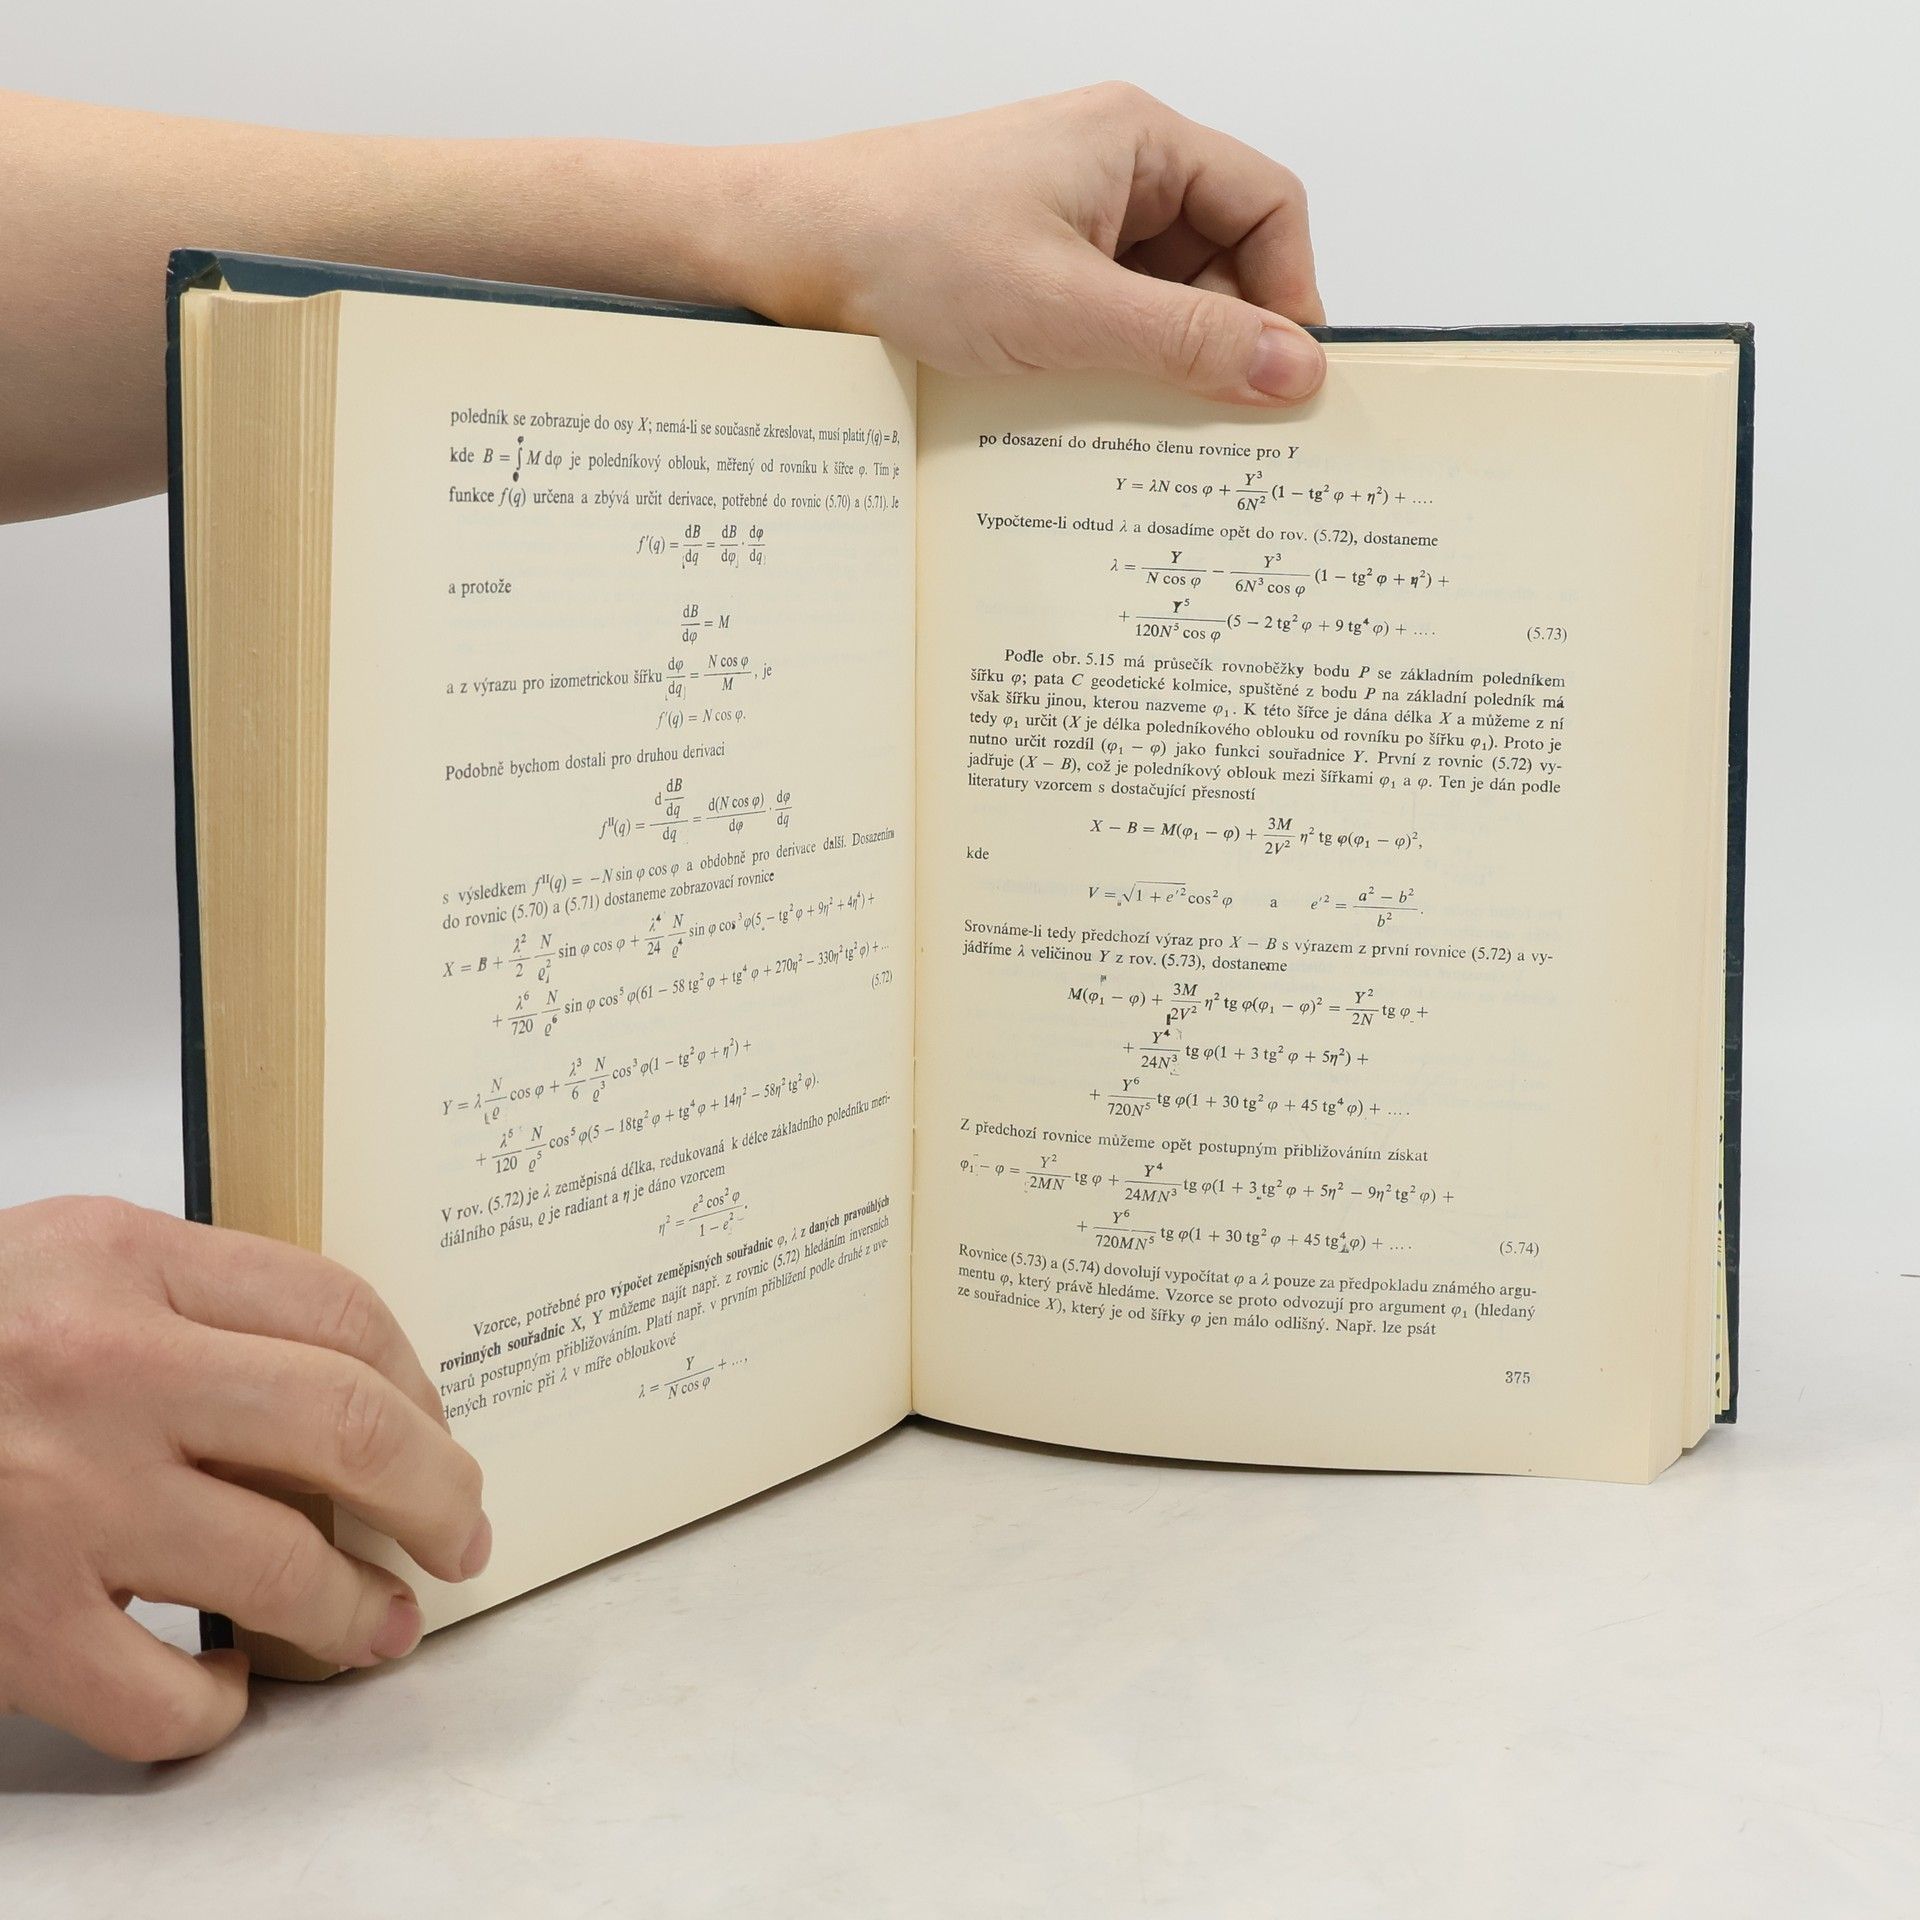 poledník se zobrazuje do osy X; nemá-li se současně zkreslovat, musí platit f(q) = B,
kde B = ∫₀^φ M dφ je poledníkový oblouk, měřený od rovníku k šířce φ. Tím je
funkce f(q) určena a zbývá určit derivace, potřebné do rovnic (5.70) a (5.71). Je
f′(q) = dB/dq = dB/dφ . dφ/dq
a protože
dB/dφ = M
a z výrazu pro izometrickou šířku dφ/dq = N cos φ/M, je
f′(q) = N cos φ.
Podobně bychom dostali pro druhou derivaci
fᴵᴵ(q) = d(dB/dq)/dq = d(N cos φ)/dφ . dφ/dq
s výsledkem fᴵᴵ(q) = −N sin φ cos φ a obdobně pro derivace další. Dosazením
do rovnic (5.70) a (5.71) dostaneme zobrazovací rovnice
X = B + λ²/2 N/ϱ² sin φ cos φ + λ⁴/24 N/ϱ⁴ sin φ cos³ φ(5 − tg² φ + 9η² + 4η⁴) +
+ λ⁶/720 N/ϱ⁶ sin φ cos⁵ φ(61 − 58 tg² φ + tg⁴ φ + 270η² − 330η² tg² φ) + ...
(5.72)
Y = λ N/ϱ cos φ + λ³/6 N/ϱ³ cos³ φ(1 − tg² φ + η²) +
+ λ⁵/120 N/ϱ⁵ cos⁵ φ(5 − 18tg² φ + tg⁴ φ + 14η² − 58η² tg² φ).
V rov. (5.72) je λ zeměpisná délka, redukovaná k délce základního poledníku meri-
diálního pásu, ϱ je radiant a η je dáno vzorcem
η² = e² cos² φ/(1 − e²).
Vzorce, potřebné pro výpočet zeměpisných souřadnic φ, λ z daných pravoúhlých
rovinných souřadnic X, Y můžeme najít např. z rovnic (5.72) hledáním inversních
tvarů postupným přibližováním. Platí např. v prvním přiblížení podle druhé z uve-
dených rovnic při λ v míře obloukové
λ = Y/(N cos φ) + ...,
po dosazení do druhého členu rovnice pro Y
Y = λN cos φ + Y³/6N² (1 − tg² φ + η²) + ....
Vypočteme-li odtud λ a dosadíme opět do rov. (5.72), dostaneme
λ = Y/(N cos φ) − Y³/(6N³ cos φ) (1 − tg² φ + η²) +
+ Y⁵/(120N⁵ cos φ) (5 − 2 tg² φ + 9 tg⁴ φ) + .... (5.73)
Podle obr. 5.15 má průsečík rovnoběžky bodu P se základním poledníkem
šířku φ; pata C geodetické kolmice, spuštěné z bodu P na základní poledník má
však šířku jinou, kterou nazveme φ₁. K této šířce je dána délka X a můžeme z ní
tedy φ₁ určit (X je délka poledníkového oblouku od rovníku po šířku φ₁). Proto je
nutno určit rozdíl (φ₁ − φ) jako funkci souřadnice Y. První z rovnic (5.72) vy-
jadřuje (X − B), což je poledníkový oblouk mezi šířkami φ₁ a φ. Ten je dán podle
literatury vzorcem s dostačující přesností
X − B = M(φ₁ − φ) + 3M/2V² η² tg φ(φ₁ − φ)²,
kde
V = √(1 + e′² cos² φ) a e′² = (a² − b²)/b².
Srovnáme-li tedy předchozí výraz pro X − B s výrazem z první rovnice (5.72) a vy-
jádříme λ veličinou Y z rov. (5.73), dostaneme
M(φ₁ − φ) + 3M/2V² η² tg φ(φ₁ − φ)² = Y²/2N tg φ +
+ Y⁴/24N³ tg φ(1 + 3 tg² φ + 5η²) +
+ Y⁶/720N⁵ tg φ(1 + 30 tg² φ + 45 tg⁴ φ) + ....
Z předchozí rovnice můžeme opět postupným přibližováním získat
φ₁ − φ = Y²/2MN tg φ + Y⁴/24MN³ tg φ(1 + 3 tg² φ + 5η² − 9η² tg² φ) +
+ Y⁶/720MN⁵ tg φ(1 + 30 tg² φ + 45 tg⁴ φ) + .... (5.74)
Rovnice (5.73) a (5.74) dovolují vypočítat φ a λ pouze za předpokladu známého argu-
mentu φ, který právě hledáme. Vzorce se proto odvozují pro argument φ₁ (hledaný
ze souřadnice X), který je od šířky φ jen málo odlišný. Např. lze psát
375